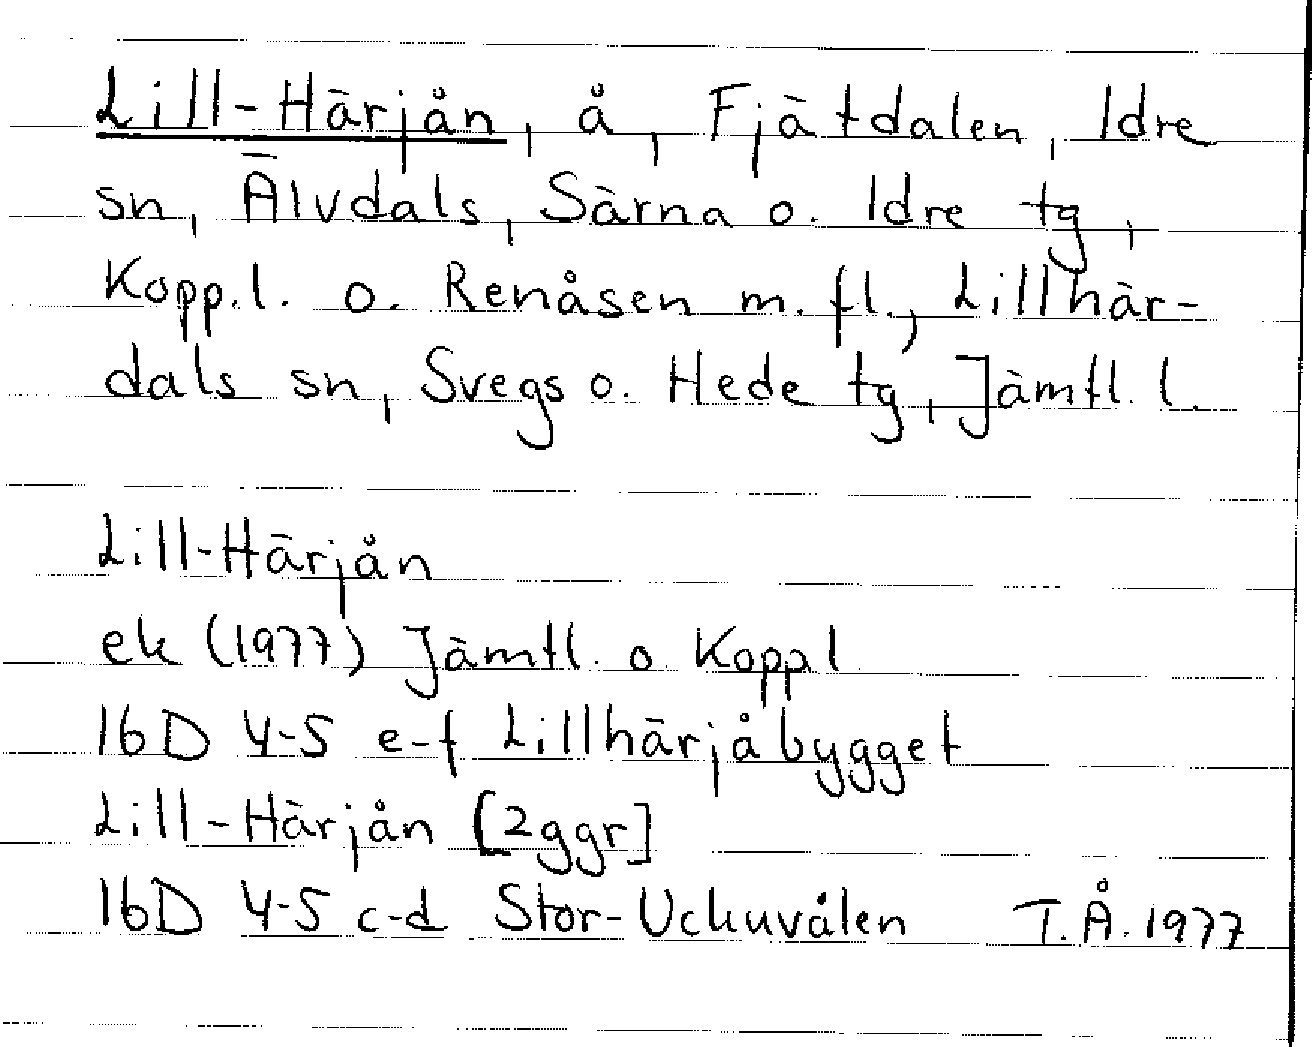 Lill-Härjån, å, Fjätdalen, Idre
sn, Älvdals, Särna o. Idre tg,
Kopp.l. o. Renåsen m.fl., Lillhär-
dals sn, Svegs o. Hede tg, Jämtl. l.
Lill-Härjån
ek (1977) Jämtl. o. Koppl
16D 4-5 e-f Lillhärjåbygget
Lill-Härjån [2ggr]
16D 4-5 c-d Stor-Uckuvålen T.Å. 1977